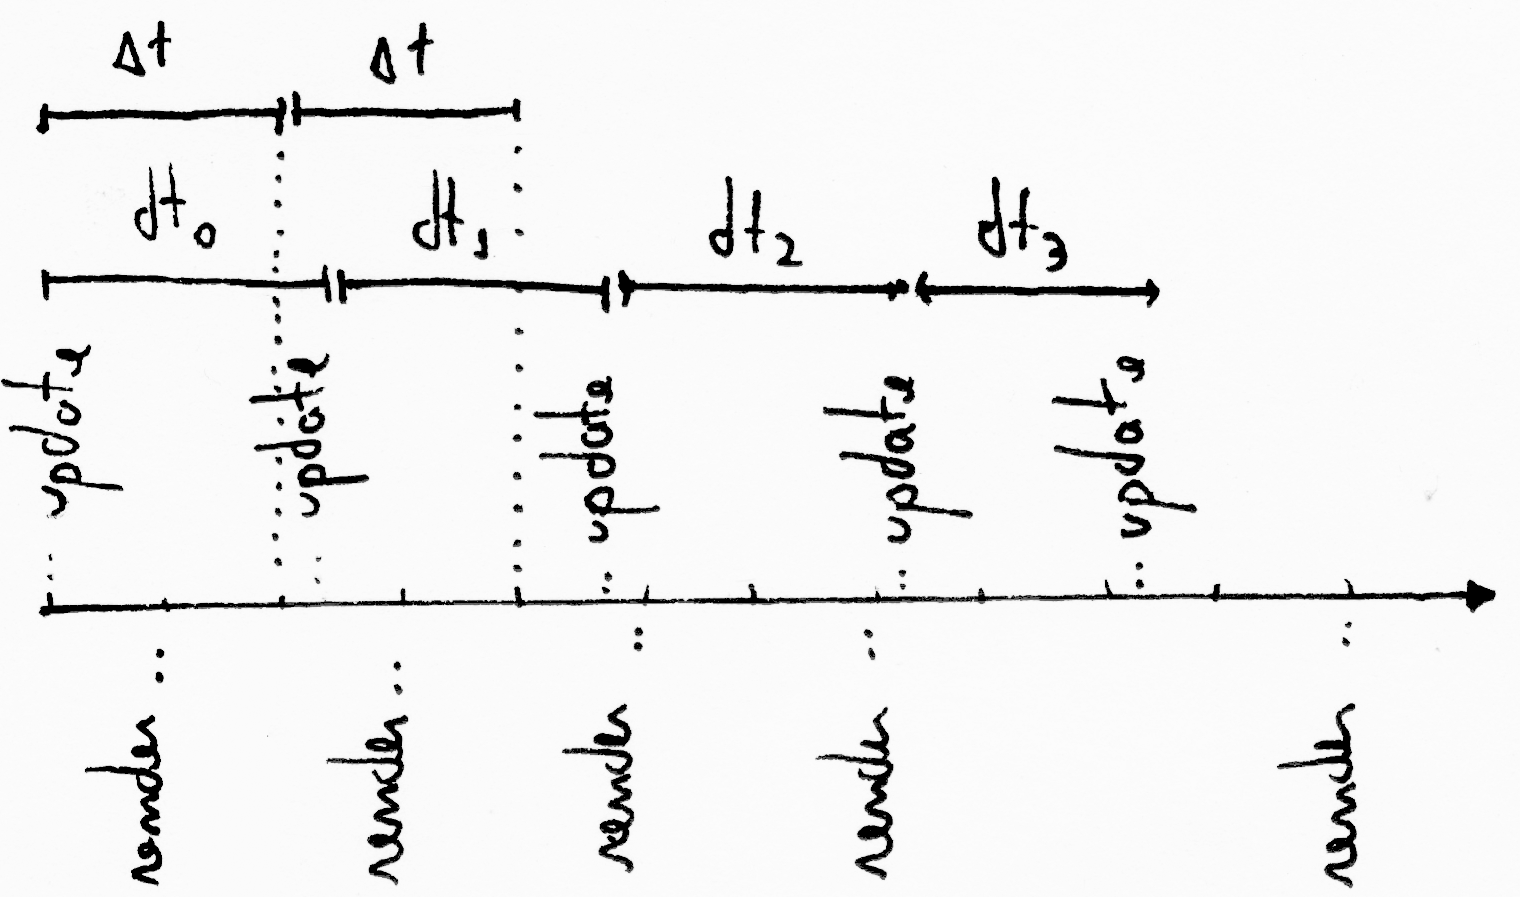 Δt Δt
dt0 dt1 dt2 dt3
update update update update update
render render render render render